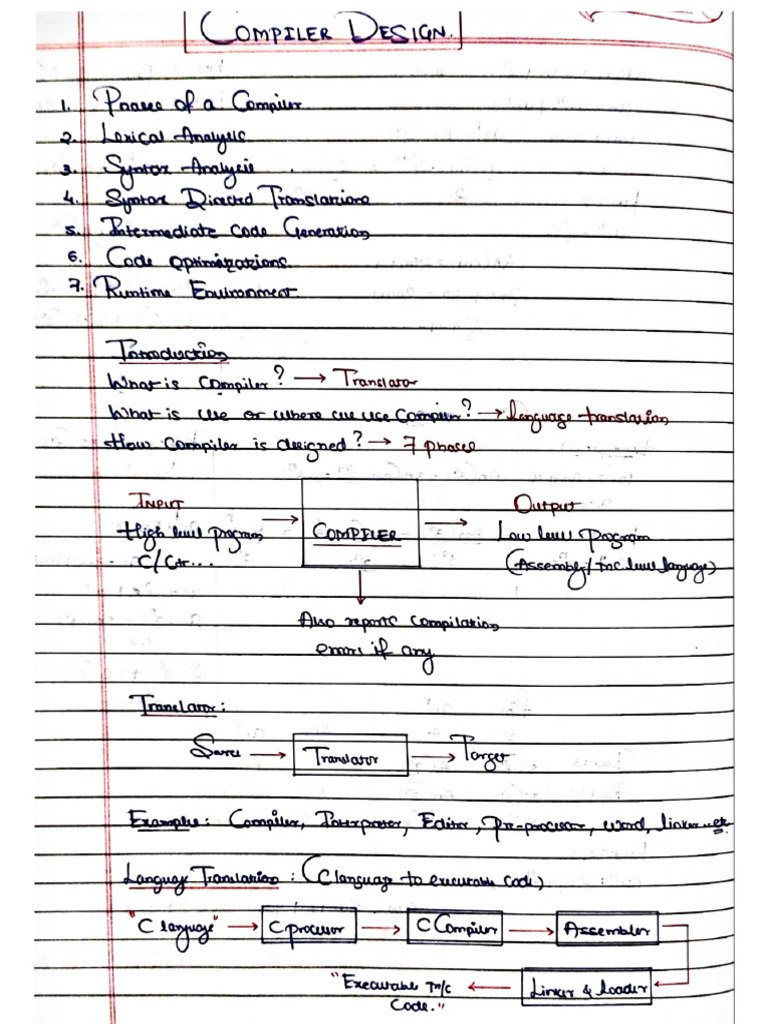 COMPILER DESIGN.
1. Phases of a Compiler
2. Lexical Analysis
3. Syntax Analysis
4. Syntax Directed Translations
5. Intermediate code Generation
6. Code Optimizations.
7. Runtime Environment.
Introduction
What is compiler? → Translator
What is use or where we use compiler? → language translation
How compiler is designed? → 7 phases
INPUT
High level program
C/C++...
→ COMPILER →
Output
Low level program
(Assembly/m/c level language)
Also reports compilation
errors if any
Translator:
Source → Translator → Target
Examples: Compiler, Interpreter, Editor, Pre-processor, word, linker..etc
Language Translation: (C language to executable code)
"C language" → C processor → C Compiler → Assembler
"Executable m/c ← Linker & loader
Code."